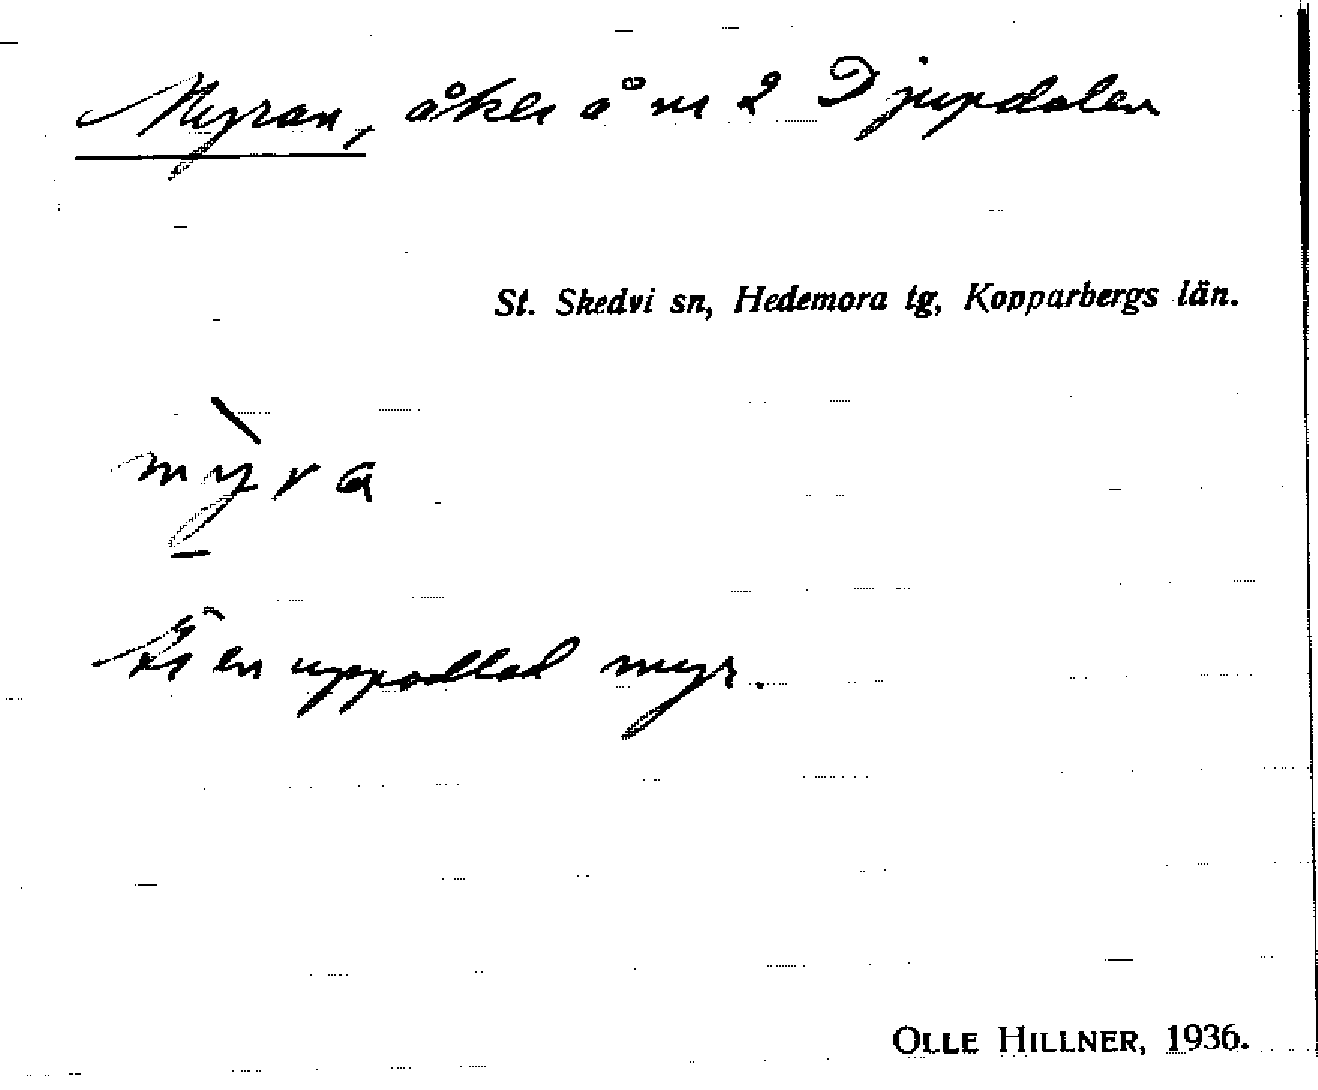 Myran, åker å nr 2 Djupdalen
St. Skedvi sn, Hedemora tg, Kopparbergs län.
mỳ̠ra
Är en uppodlad myr.
OLLE HILLNER, 1936.